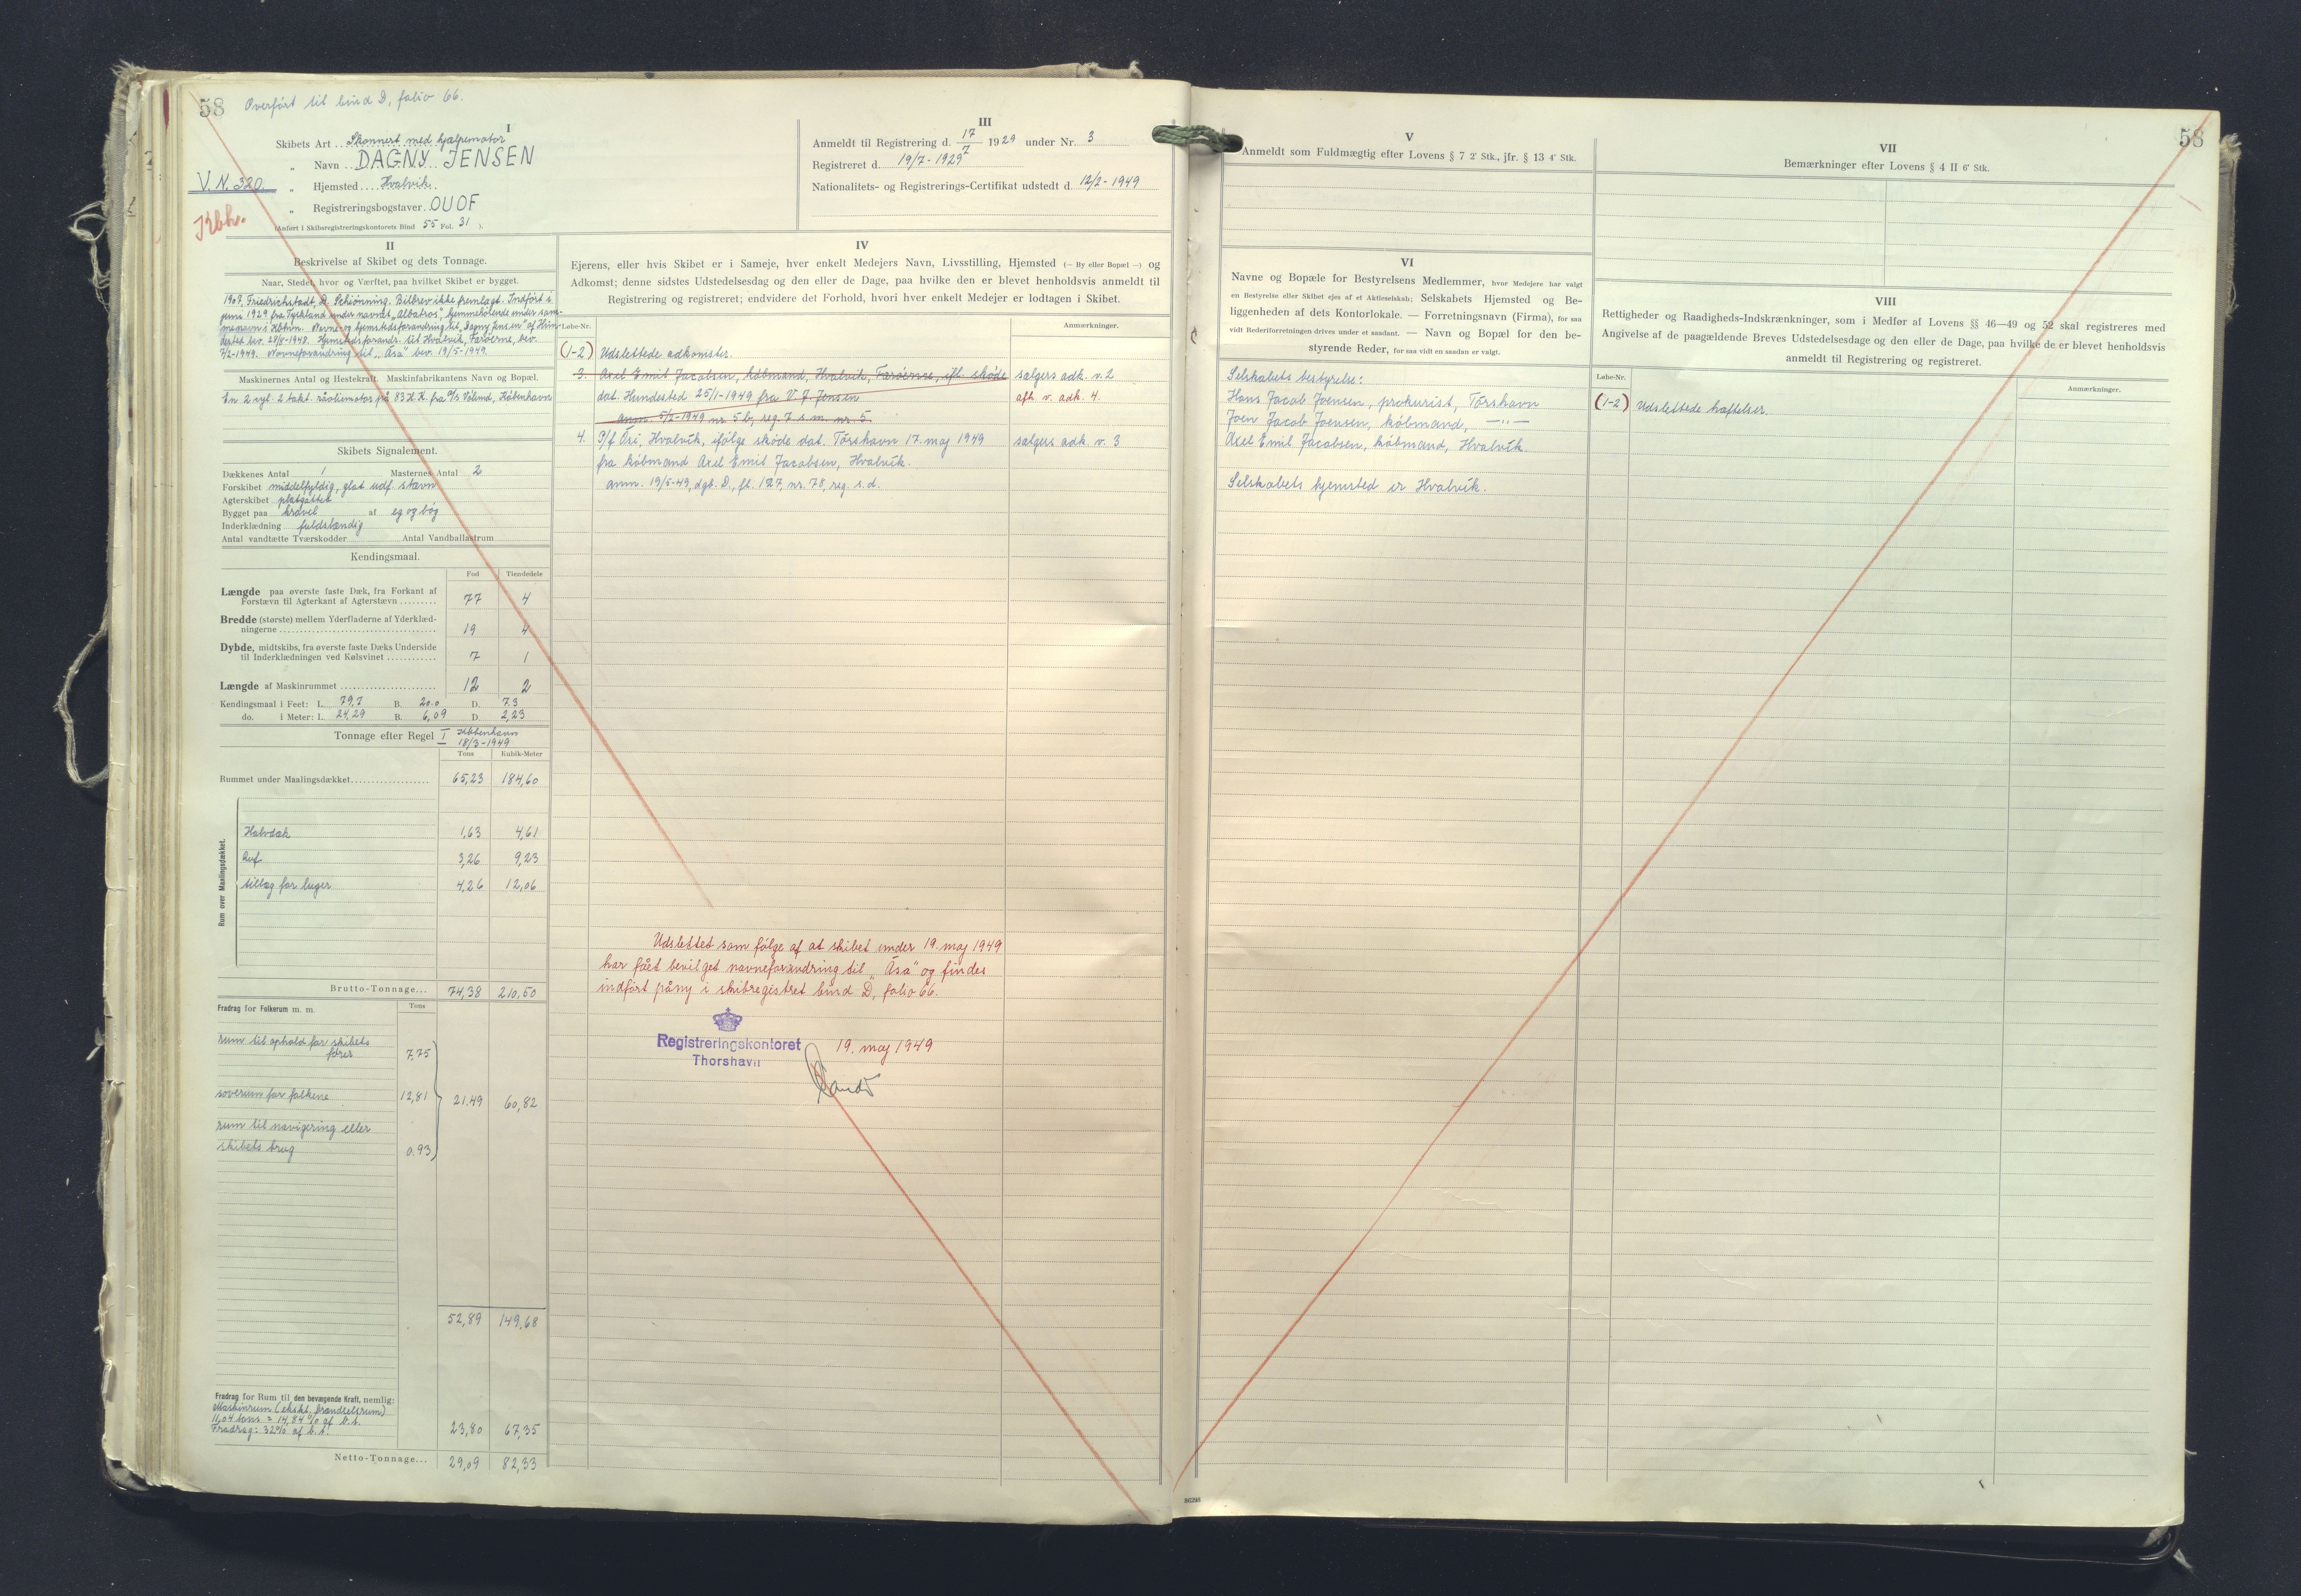 58 Overført til bind D, folio 66.
I
Skibets Art Skonnert med hjælpemotor
" Navn DAGNY JENSEN
V.N. 320.
" Hjemsted Hvalvík.
" Registreringsbogstaver OUOF
Kbh.
(Anført i Skibsregistreringskontorets Bind 55 Fol. 31 ).
III
Anmeldt til Registrering d. 17/7 1929 under Nr. 3
Registreret d. 19/7-1929
Nationalitets- og Registrerings-Certifikat udstedt d. 12/2-1949
II
Beskrivelse af Skibet og dets Tonnage.
Naar, Stedet, hvor og Værftet, paa hvilket Skibet er bygget.
1907, Friedrichstadt, D. Schiønning. Bilbrev ikke fremlagt. Indført i
juni 1929 fra Tyskland under navnet „Albatros", hjemmehørende under sam-
menavn i Kbhvn. Navne- og hjemstedsforandring til „Dagny Jensen" af Hun-
dested bev. 28/8-1948. Hjemstedsforandr. til Hvalvík, Færøerne, bev.
7/2-1949. Navneforandring til „Ása" bev. 19/5-1949.
Maskinernes Antal og Hestekraft. Maskinfabrikantens Navn og Bopæl.
En 2 cyl. 2 takt. råoliemotor på 83 H.K. fra A/S Vølund, København
Skibets Signalement.
Dækkenes Antal 1 Masternes Antal 2
Forskibet middelfyldig, glat udf. stævn
Agterskibet platgattet
Bygget paa kravel af eg og bøg
Inderklædning fuldstændig
Antal vandtætte Tværskodder Antal Vandballastrum
Kendingsmaal.
Fod Tiendedele
Længde paa øverste faste Dæk, fra Forkant af
Forstævn til Agterkant af Agterstævn 77 4
Bredde (største) mellem Yderfladerne af Yderklæd-
ningerne 19 4
Dybde, midtskibs, fra øverste faste Dæks Underside
til Inderklædningen ved Kølsvinet 7 1
Længde af Maskinrummet 12 2
Kendingsmaal i Feet: L. 79,7 B. 20.0 D. 7.3
do. i Meter: L. 24,29 B. 6,09 D. 2,23
Tonnage efter Regel I København
18/3-1949
Tons Kubik-Meter
Rummet under Maalingsdækket 65,23 184,60
Rum over Maalingsdækket.
Halvdæk 1,63 4,61
Ruf 3,26 9,23
tillæg for luger 4,26 12,06
Brutto-Tonnage... 74,38 210,50
Fradrag for Folkerum m. m. Tons
rum til ophold for skibets
fører 7,75
soverum for folkene 12,81 21.49 60,82
rum til navigering eller
skibets brug 0.93
52,89 149,68
Fradrag for Rum til den bevægende Kraft, nemlig:
Maskinrum (ekskl. brændselsrum)
11,04 tons = 14,84 % af b.t.
Fradrag: 32% af b.t. 23,80 67,35
Netto-Tonnage... 29,09 82,33
IV
Ejerens, eller hvis Skibet er i Sameje, hver enkelt Medejers Navn, Livsstilling, Hjemsted (— By eller Bopæl —) og
Adkomst; denne sidstes Udstedelsesdag og den eller de Dage, paa hvilke den er blevet henholdsvis anmeldt til
Registrering og registreret; endvidere det Forhold, hvori hver enkelt Medejer er lodtagen i Skibet.
Løbe-Nr. Anmærkninger.
(1-2) Udslettede adkomster.
3. Axel Emil Jacobsen, købmand, Hvalvík, Færøerne, ifl. skøde sælgers adk. v. 2
dat. Hundested 25/1-1949 fra V J Jensen afh. v. adk. 4.
anm. 5/2-1949 nr. 5 b, reg. 7 s.m. nr. 5.
4. P/f Ási, Hvalvík, ifølge skøde dat. Tórshavn 17. maj 1949 sælgers adk. v. 3
fra købmand Axel Emil Jacobsen, Hvalvík.
anm. 19/5-49, dgb. D, fl. 127, nr. 78, reg. s.d.
Udslettet som følge af at skibet under 19. maj 1949
har fået bevilget navneforandring til „Ása" og findes
indført påny i skibsregistret bind D, folio 66.
Registreringskontoret
Thorshavn
19. maj 1949
V
Anmeldt som Fuldmægtig efter Lovens § 7 2' Stk., jfr. § 13 4' Stk.
VI
Navne og Bopæle for Bestyrelsens Medlemmer, hvor Medejere har valgt
en Bestyrelse eller Skibet ejes af et Aktieselskab; Selskabets Hjemsted og Be-
liggenheden af dets Kontorlokale. — Forretningsnavn (Firma), for saa
vidt Rederiforretningen drives under et saadant. — Navn og Bopæl for den be-
styrende Reder, for saa vidt en saadan er valgt.
Selskabets bestyrelse:
Hans Jacob Joensen, prokurist, Tórshavn
Joen Jacob Joensen, købmand, —"—
Axel Emil Jacobsen, købmand, Hvalvík.
Selskabets hjemsted er Hvalvík.
58
VII
Bemærkninger efter Lovens § 4 II 6' Stk.
VIII
Rettigheder og Raadigheds-Indskrænkninger, som i Medfør af Lovens §§ 46—49 og 52 skal registreres med
Angivelse af de paagældende Breves Udstedelsesdage og den eller de Dage, paa hvilke de er blevet henholdsvis
anmeldt til Registrering og registreret.
Løbe-Nr. Anmærkninger.
(1-2) Udslettede hæftelser.
86298